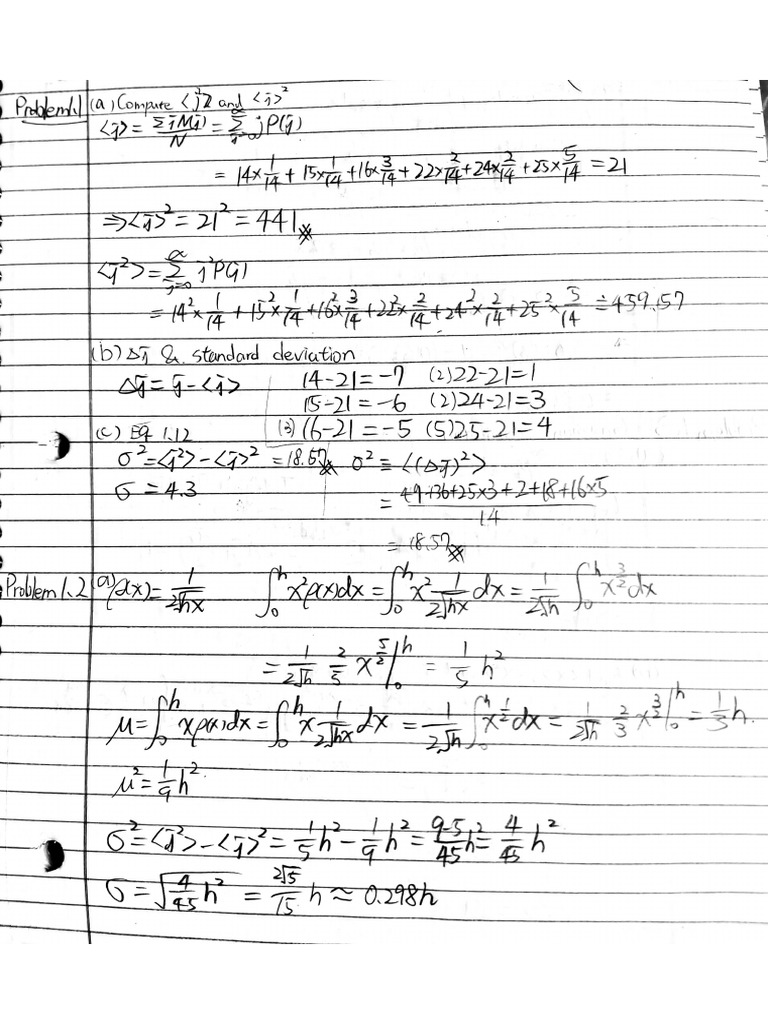 Problem 1.1 (a) Compute <j²> and <j>²
<j> = ΣjN(j)/N = Σ_{j=0}^∞ jP(j)
= 14×1/14 + 15×1/14 + 16×3/14 + 22×2/14 + 24×2/14 + 25×5/14 = 21
⇒ <j>² = 21² = 441
<j²> = Σ_{j=0}^∞ j²P(j)
= 14²×1/14 + 15²×1/14 + 16²×3/14 + 22²×2/14 + 24²×2/14 + 25²×5/14 = 459.57
(b) Δj & standard deviation
Δj = j - <j> 14-21 = -7 (2) 22-21 = 1
15-21 = -6 (2) 24-21 = 3
(c) Eq 1.12 (3) 16-21 = -5 (5) 25-21 = 4
σ² = <j²> - <j>² = 18.57 σ² ≡ <(Δj)²>
σ = 4.3 = (49+36+25×3+2+18+16×5)/14
= 18.57
Problem 1.2 (a) ρ(x) = 1/(2√hx) ∫₀ʰ x²ρ(x)dx = ∫₀ʰ x² 1/(2√hx) dx = 1/(2√h) ∫₀ʰ x^(3/2) dx
= 1/(2√h) 2/5 x^(5/2) |₀ʰ = 1/5 h²
μ = ∫₀ʰ xρ(x)dx = ∫₀ʰ x 1/(2√hx) dx = 1/(2√h) ∫₀ʰ x^(1/2) dx = 1/(2√h) 2/3 x^(3/2) |₀ʰ = 1/3 h.
μ² = 1/9 h²
σ² = <j²> - <j>² = 1/5 h² - 1/9 h² = (9-5)/45 h² = 4/45 h²
σ = √(4/45 h²) = 2√5/15 h ≈ 0.298h